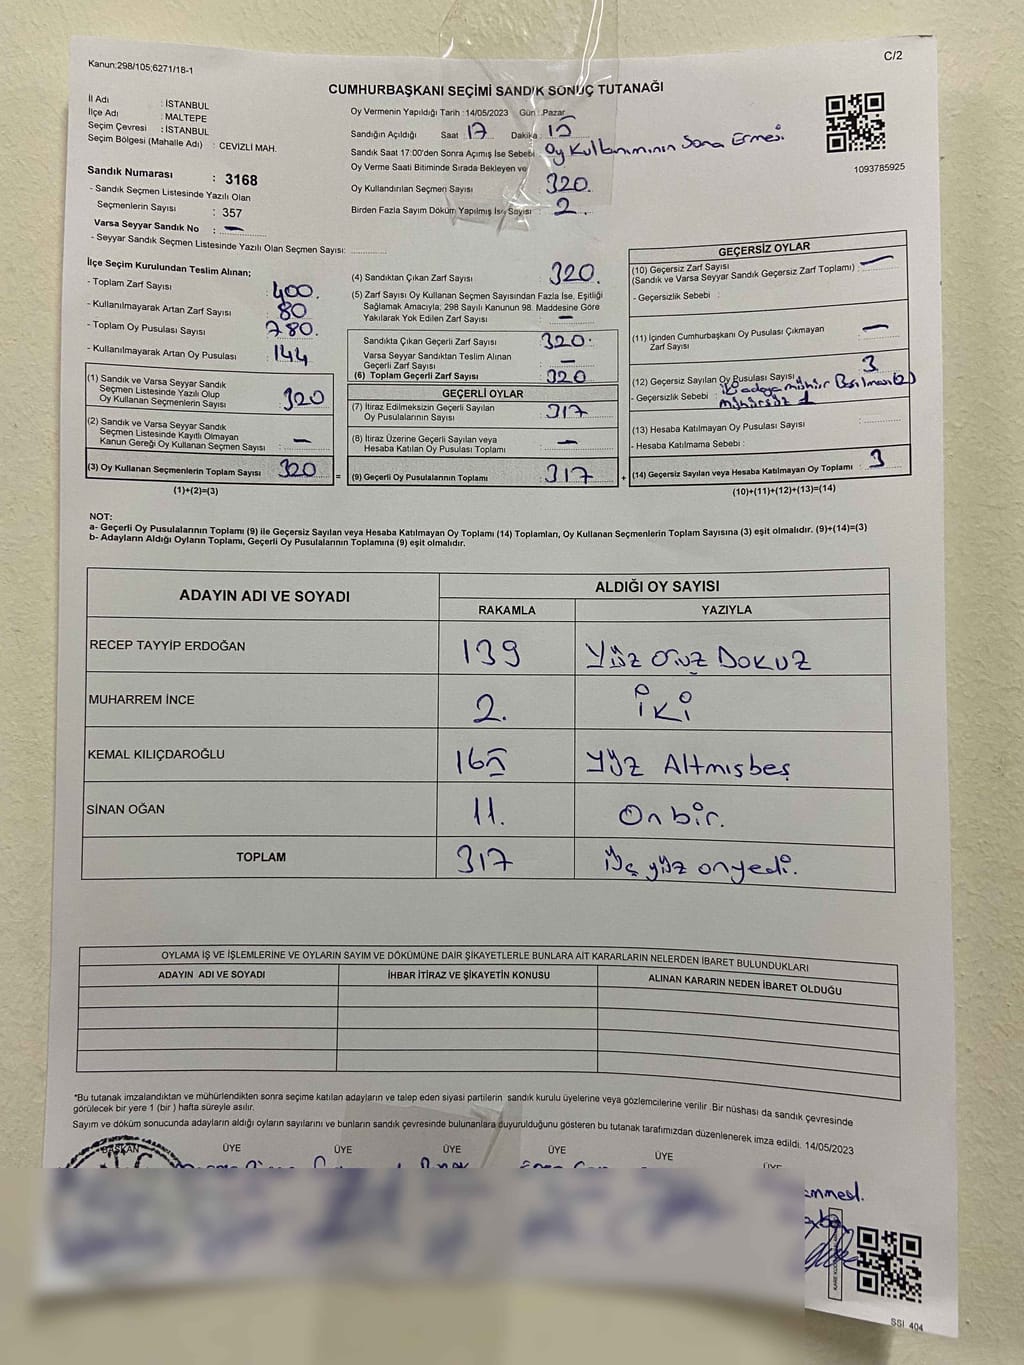 C/2
Kanun:298/105;6271/18-1
CUMHURBAŞKANI SEÇİMİ SANDIK SONUÇ TUTANAĞI
İl Adı : İSTANBUL
İlçe Adı : MALTEPE
Seçim Çevresi : İSTANBUL
Seçim Bölgesi (Mahalle Adı) : CEVİZLİ MAH.
Sandık Numarası : 3168
- Sandık Seçmen Listesinde Yazılı Olan
Seçmenlerin Sayısı : 357
Varsa Seyyar Sandık No : —
- Seyyar Sandık Seçmen Listesinde Yazılı Olan Seçmen Sayısı: ..............
Oy Vermenin Yapıldığı Tarih : 14/05/2023 Gün : Pazar
Sandığın Açıldığı Saat 17 Dakika : 15
Sandık Saat 17:00'den Sonra Açımış İse Sebebi : Oy Kullanımının Sona Ermesi
Oy Verme Saati Bitiminde Sırada Bekleyen ve
Oy Kullandırılan Seçmen Sayısı 320.
Birden Fazla Sayım Döküm Yapılmış İse Sayısı : 2.
1093785925
İlçe Seçim Kurulundan Teslim Alınan;
- Toplam Zarf Sayısı : 400.
- Kullanılmayarak Artan Zarf Sayısı : 80
- Toplam Oy Pusulası Sayısı : 780.
- Kullanılmayarak Artan Oy Pusulası : 144
(1) Sandık ve Varsa Seyyar Sandık
Seçmen Listesinde Yazılı Olup
Oy Kullanan Seçmenlerin Sayısı : 320
(2) Sandık ve Varsa Seyyar Sandık
Seçmen Listesinde Kayıtlı Olmayan
Kanun Gereği Oy Kullanan Seçmen Sayısı : —
(3) Oy Kullanan Seçmenlerin Toplam Sayısı 320 =
(1)+(2)=(3)
(4) Sandıktan Çıkan Zarf Sayısı : 320.
(5) Zarf Sayısı Oy Kullanan Seçmen Sayısından Fazla İse, Eşitliği
Sağlamak Amacıyla; 298 Sayılı Kanunun 98. Maddesine Göre
Yakılarak Yok Edilen Zarf Sayısı : —
Sandıkta Çıkan Geçerli Zarf Sayısı : 320.
Varsa Seyyar Sandıktan Teslim Alınan
Geçerli Zarf Sayısı : —
(6) Toplam Geçerli Zarf Sayısı : 320
GEÇERLİ OYLAR
(7) İtiraz Edilmeksizin Geçerli Sayılan
Oy Pusulalarının Sayısı : 317
(8) İtiraz Üzerine Geçerli Sayılan veya
Hesaba Katılan Oy Pusulası Toplamı : —
(9) Geçerli Oy Pusulalarının Toplamı : 317 +
GEÇERSİZ OYLAR
(10) Geçersiz Zarf Sayısı
(Sandık ve Varsa Seyyar Sandık Geçersiz Zarf Toplamı) : —
- Geçersizlik Sebebi :
(11) İçinden Cumhurbaşkanı Oy Pusulası Çıkmayan
Zarf Sayısı : —
(12) Geçersiz Sayılan Oy Pusulası Sayısı : 3
- Geçersizlik Sebebi : iki adaya mühür Basılması (2)
mühürsüz 1
(13) Hesaba Katılmayan Oy Pusulası Sayısı :
- Hesaba Katılmama Sebebi :
(14) Geçersiz Sayılan veya Hesaba Katılmayan Oy Toplamı : 3
(10)+(11)+(12)+(13)=(14)
NOT:
a- Geçerli Oy Pusulalarının Toplamı (9) ile Geçersiz Sayılan veya Hesaba Katılmayan Oy Toplamı (14) Toplamları, Oy Kullanan Seçmenlerin Toplam Sayısına (3) eşit olmalıdır. (9)+(14)=(3)
b- Adayların Aldığı Oyların Toplamı, Geçerli Oy Pusulalarının Toplamına (9) eşit olmalıdır.
ADAYIN ADI VE SOYADI ALDIĞI OY SAYISI
RAKAMLA YAZIYLA
RECEP TAYYİP ERDOĞAN 139 Yüz Otuz Dokuz
MUHARREM İNCE 2. İki
KEMAL KILIÇDAROĞLU 165 Yüz Altmışbeş
SİNAN OĞAN 11. On bir.
TOPLAM 317 Üç yüz onyedi.
OYLAMA İŞ VE İŞLEMLERİNE VE OYLARIN SAYIM VE DÖKÜMÜNE DAİR ŞİKAYETLERLE BUNLARA AİT KARARLARIN NELERDEN İBARET BULUNDUKLARI
ADAYIN ADI VE SOYADI İHBAR İTİRAZ VE ŞİKAYETİN KONUSU ALINAN KARARIN NEDEN İBARET OLDUĞU
*Bu tutanak imzalandıktan ve mühürlendikten sonra seçime katılan adayların ve talep eden siyasi partilerin sandık kurulu üyelerine veya gözlemcilerine verilir .Bir nüshası da sandık çevresinde
görülecek bir yere 1 (bir ) hafta süreyle asılır.
Sayım ve döküm sonucunda adayların aldığı oyların sayılarını ve bunların sandık çevresinde bulunanlara duyurulduğunu gösteren bu tutanak tarafımızdan düzenlenerek imza edildi. 14/05/2023
BAŞKAN ÜYE ÜYE ÜYE ÜYE ÜYE ÜYE
SSİ 404